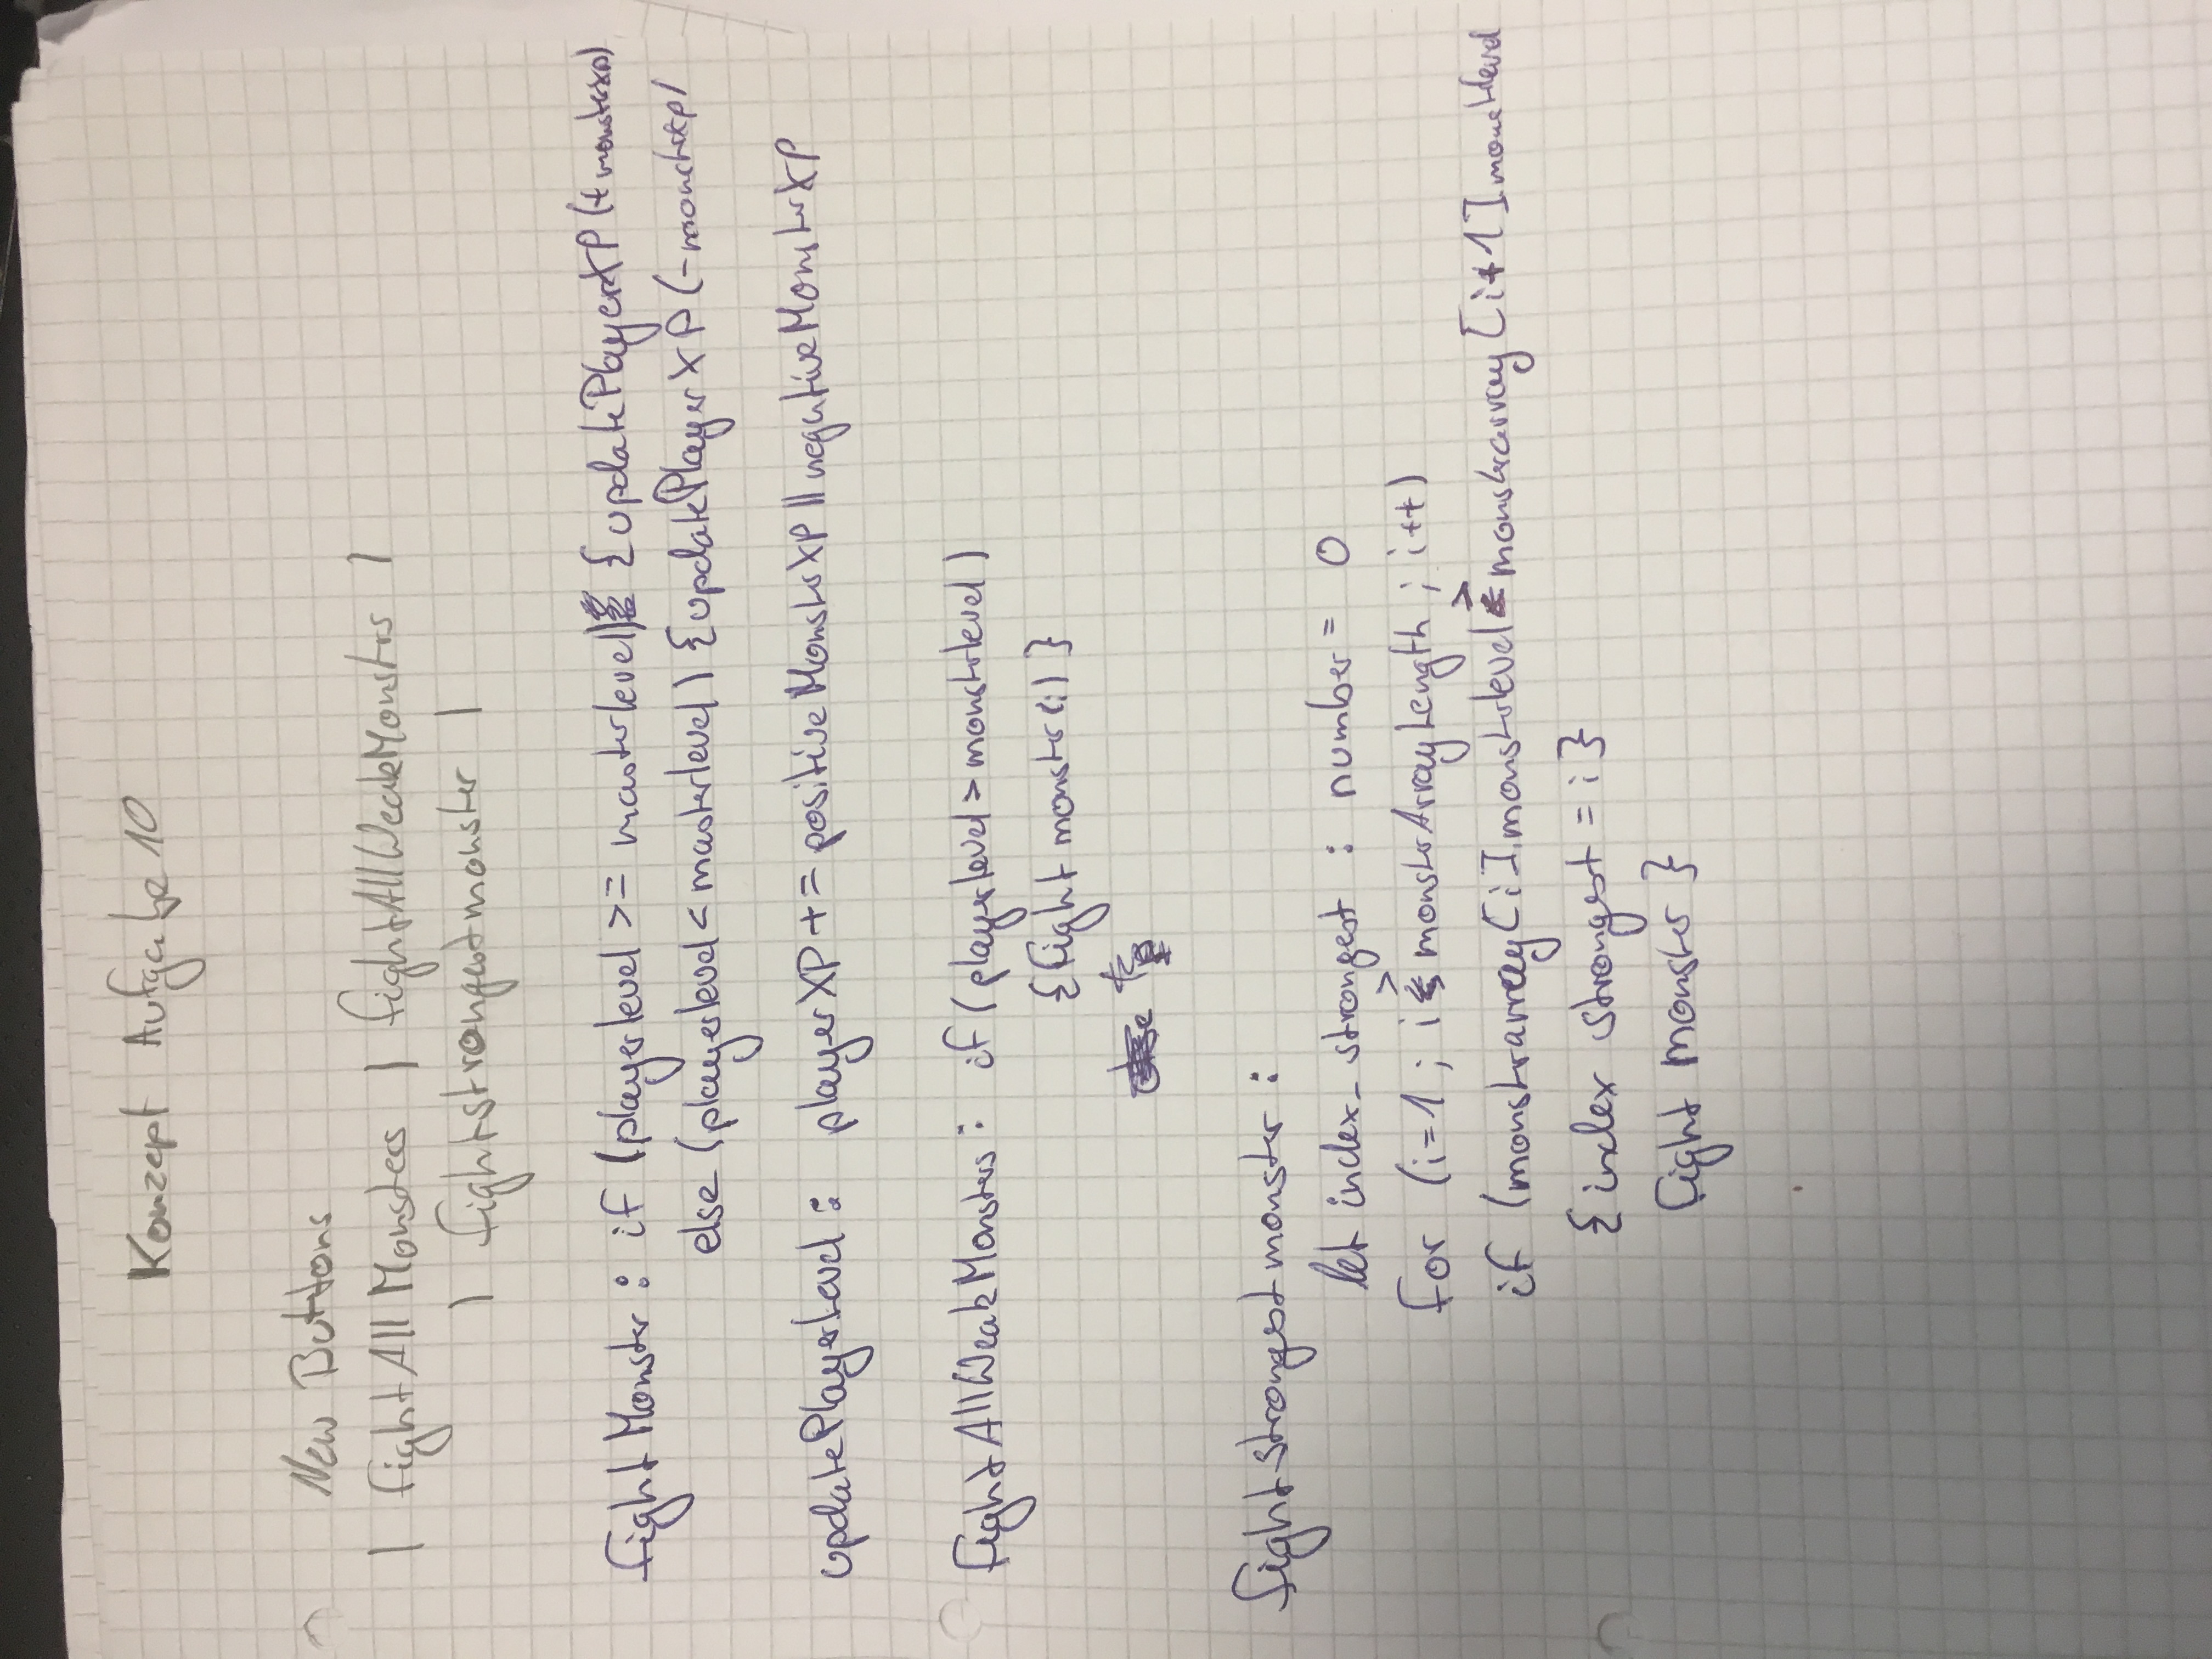 Konzept Aufgabe 10
New Buttons
| fightAllMonsters | fightAllWeakMonstrs |
| fightstrongestmonster |
fightMonster : if (playerlevel >= masterlevel) {updatePlayerXP (+monsterxp)
else (playerlevel < masterlevel) {updatePlayerXP (-monstrxp)
updatePlayerLevel : playerXP += positiveMonsterXP || negativeMonsterXP
fightAllWeakMonsters : if (playerlevel > monstrlevel)
{fight monster(i) }
fightstrongestmonster :
let index_strongest : number = 0
for (i=1 ; i > monstrArrayLength ; i++)
if (monstrarray[i].monstrlevel > monstrarray[i+1].monstrlevel
{index strongest = i}
fight monster }